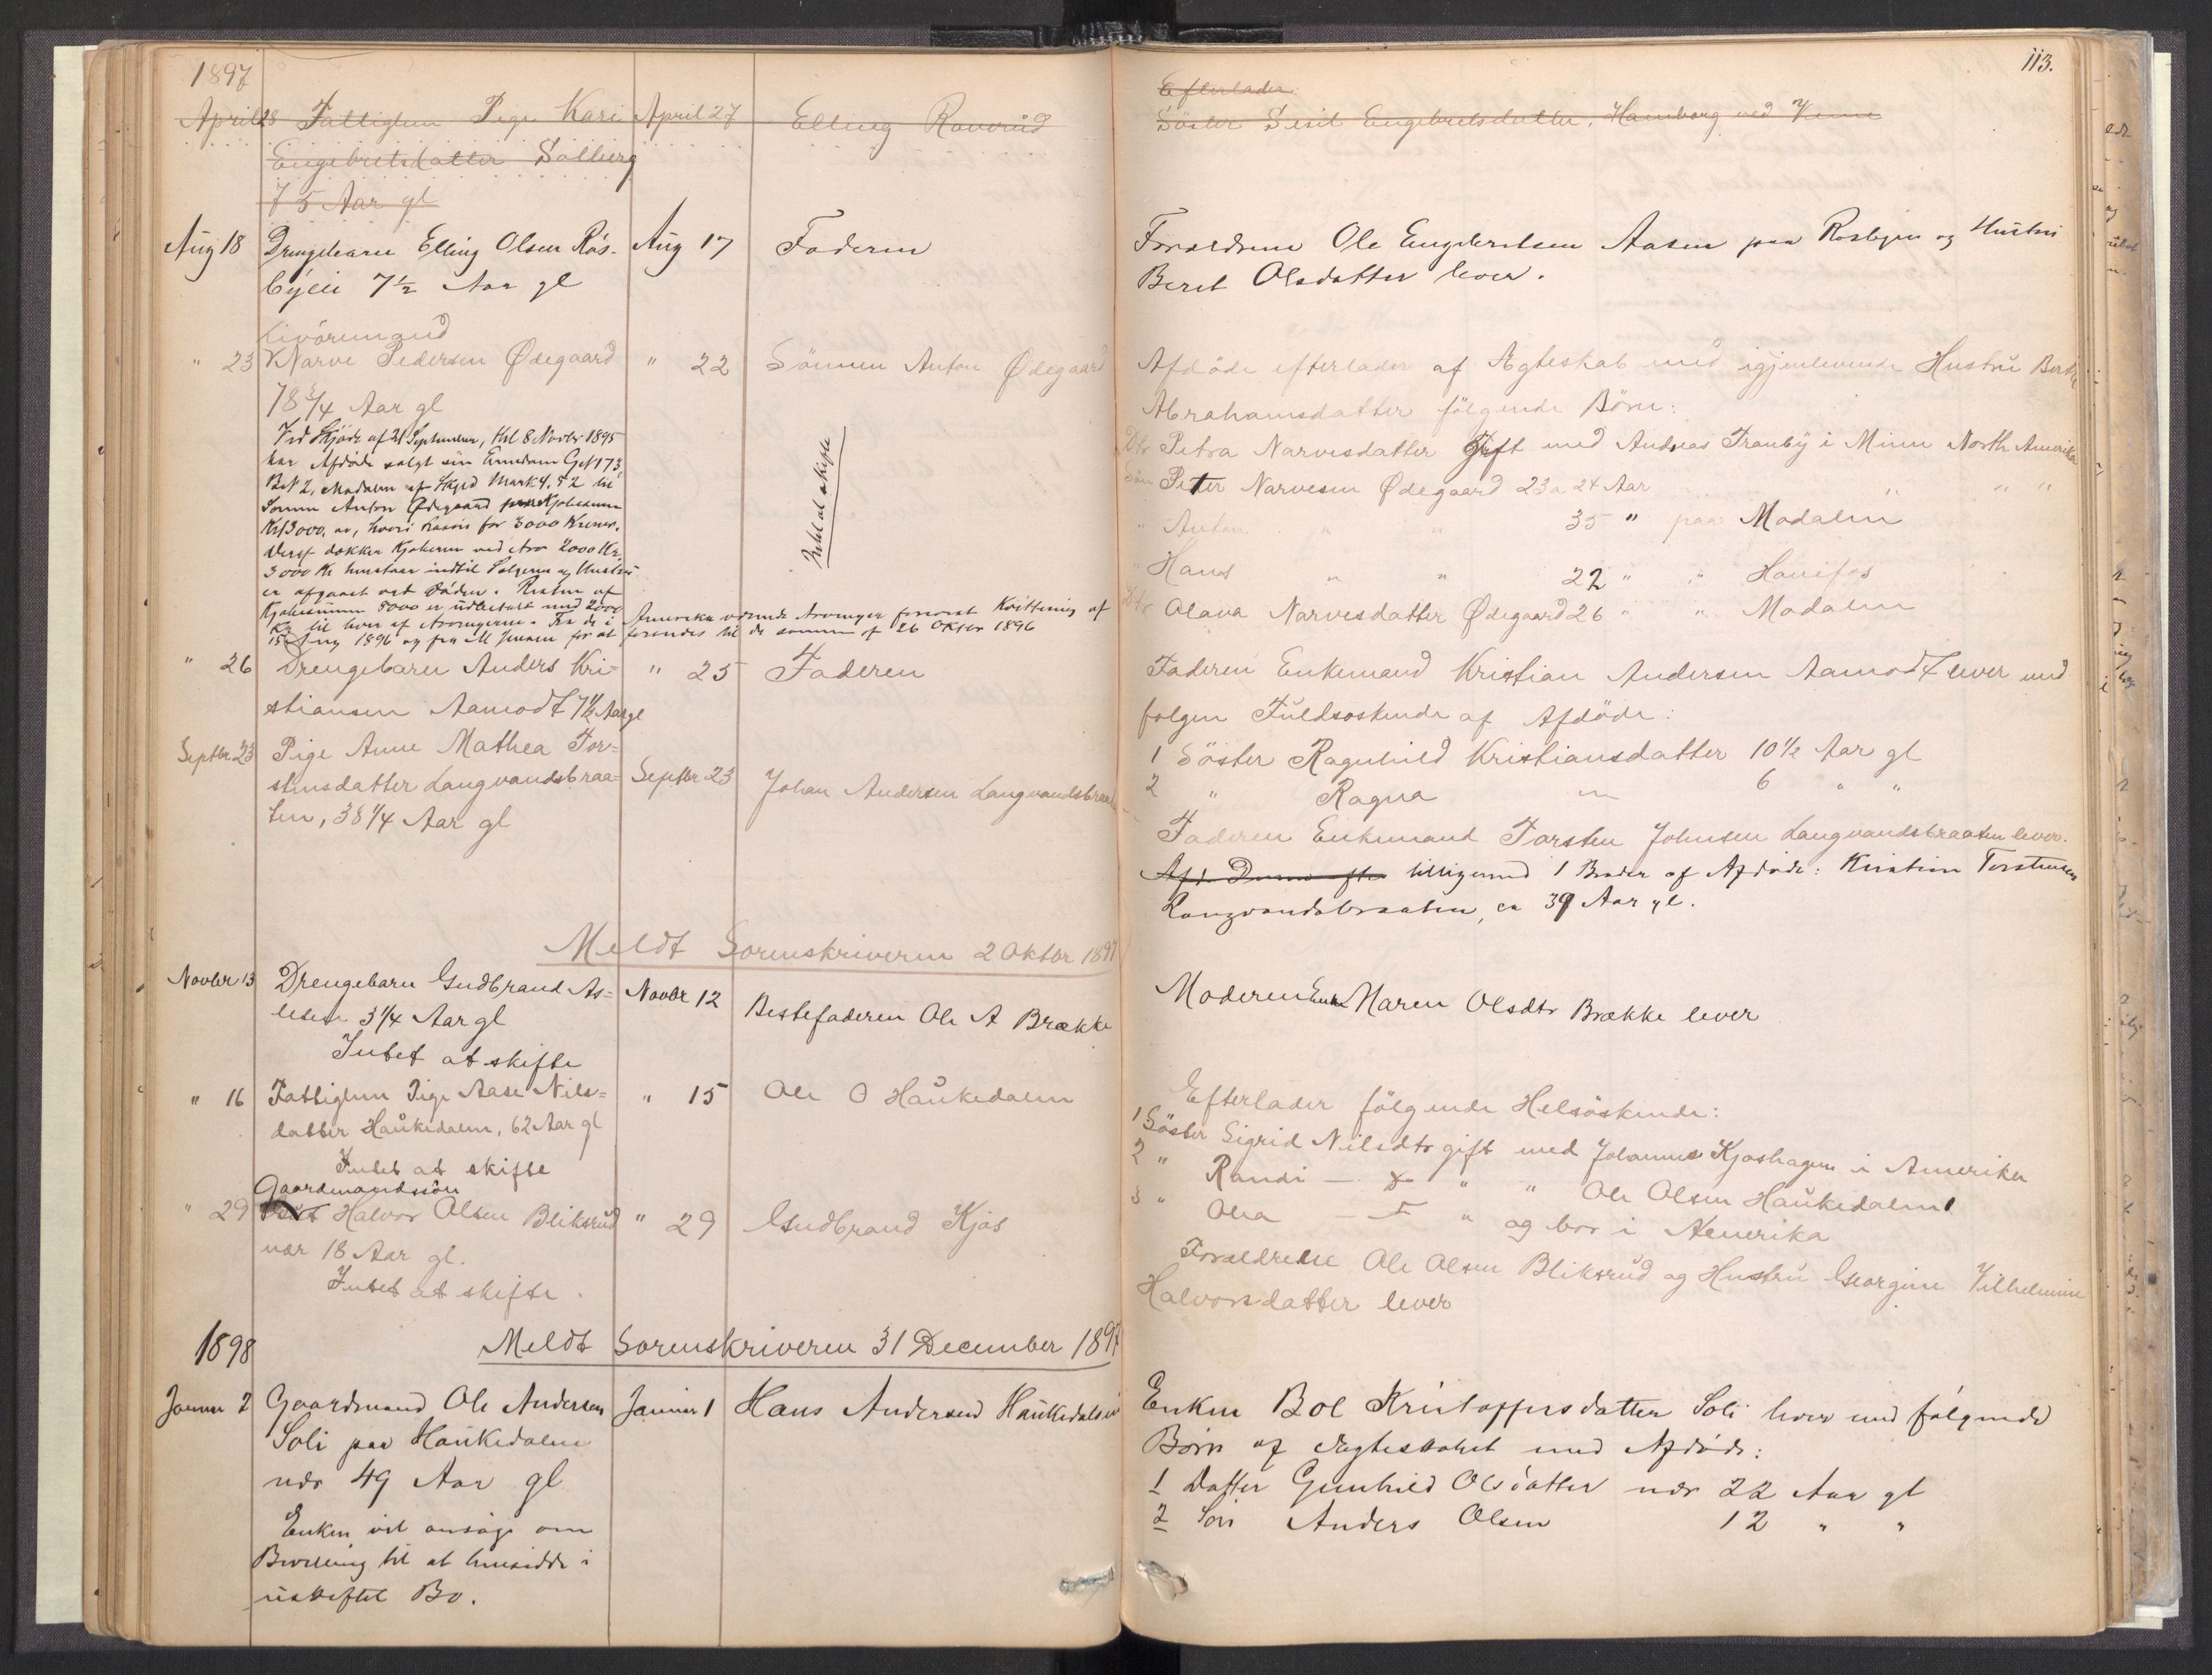 1897
April 28 Fattiglem Pige Kari April 27 Elling Ravnrud
Engebretsdatter Solberg
75 Aar gl
Aug 18 Drengebarn Elling Olsen Ros- Aug 17 Faderen
byen 7 1/2 Aar gl
Livöremand
" 23 Narve Pedersen Ødegaard " 22 Sönnen Anton Ødegaard
78 3/4 Aar gl
Ved Skjöde af 21 September, thl 8 Novbr 1895
har Afdöde solgt sin Eiendom GN 173,
BN 2, Modalen af Skyld Mark 4,52 til
Sönnen Anton Ødegaard Kjøbesum
Kr 13000, hvori Løsøre for 3000 Kroner.
3000 Kr henstaar indtil Sælgeren og Hustru
er afgaaet ved Döden. Resten af
Kjøbesummen 8000 er udbetalt med 2000
Kr til hver af Arvingerne. Fra de i Amerika værende Arvinger foreviist Kvittering af
15 Aug 1896 og fra M Jensen for at forsendes til de sammen af 26 Oktbr 1896
Intet at skifte
" 26 Drengebarn Anders Kri= " 25 Faderen
stiansen Aamodt 7 1/2 Aar gl
Septbr 23 Pige Anne Mathea Tor=
stensdatter Langvandsbraa= Septbr 23 Johan Andersen Langvandsbraaten
ten, 38 1/4 Aar gl
Meldt Sorenskriveren 2 Oktbr 1897
Novbr 13 Drengebarn Gudbrand As= Novbr 12 Bestefaderen Ole A Brække
lesen 3 1/4 Aar gl
Intet at skifte
" 16 Fattiglem Pige Aase Nils= " 15 Ole O Haukedalen
datter Haukedalen, 62 Aar gl
Intet at skifte
Gaardmandssön
" 29 Halvor Olsen Bliksrud " 29 Gudbrand Kjos
nær 18 Aar gl.
Intet at skifte.
1898 Meldt Sorenskriveren 31 December 1897
Januar 2 Gaardmand Ole Andersen Januar 1 Hans Andersen Haukedalen
Soli paa Haukedalen
nær 49 Aar gl
Enken vil ansøge om
Bevilling til at hensidde i
uskiftet Bo.
113.
Efterlader:
Söster Sisil Engebretsdatter, Hamborg ved Veme
Forældrene Ole Engebretsen Aasen paa Rosbyen og Hustru
Beret Olsdatter lever.
Afdöde efterlader af Ægteskab med igjenlevende Hustru Berthe
Abrahamsdatter fölgende Börn:
Dtr Petra Narvesdatter Gift med Andreas Tranby i Minn North Amerika
Sön Peter Narvesen Ødegaard 23 a 24 Aar " " "
" Anton " " 35 " paa Modalen
" Hans " " 22 " " Hönefos
Dtr Olava Narvesdatter Ødegaard 26 " " Modalen
Faderen Enkemand Kristian Andersen Aamodt lever med
fölgen Fuldsöskende af Afdöde:
1 Söster Ragnhild Kristiansdatter 10 1/2 Aar gl
2 " Ragna " 6 " "
Faderen Enkemand Torsten Johnsen Langvandsbraaten lever.
tilligemed 1 Broder af Afdöde: Kristian Torstensen
Langvandsbraaten, ca 39 Aar gl.
Moderen Enke Maren Olsdtr Brække lever
Efterlader fölgende Helsöskende:
1 Söster Sigrid Nilsdtr gift med Johannes Kjoshagen i Amerika
2 " Randi — " — " " Ole Olsen Haukedalen
3 " Olea — " — " og bor i Amerika
Forældrene Ole Olsen Bliksrud og Hustru Georgine Vilhelmine
Halvorsdatter lever
Enken Bol Kristoffersdatter Soli lever med fölgende
Börn af Ægteskabet med Afdöde:
1 Datter Gunhild Olsdatter nær 22 Aar gl
2 Sön Anders Olsen 12 " "